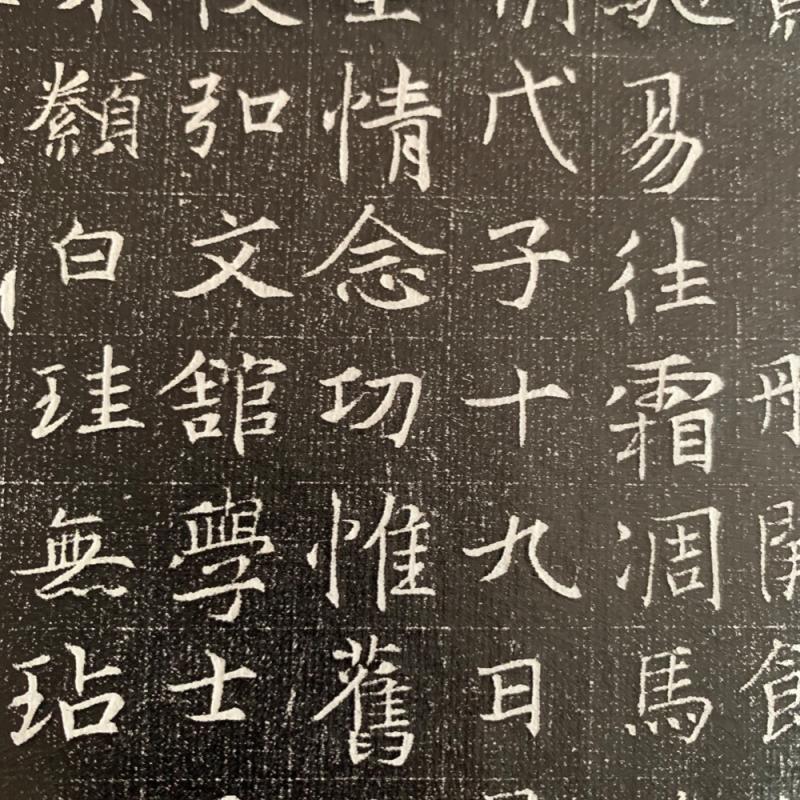 易往霜凋馬
代子十九日
情念功惟舊
弘文舘學士
纇白珪無玷